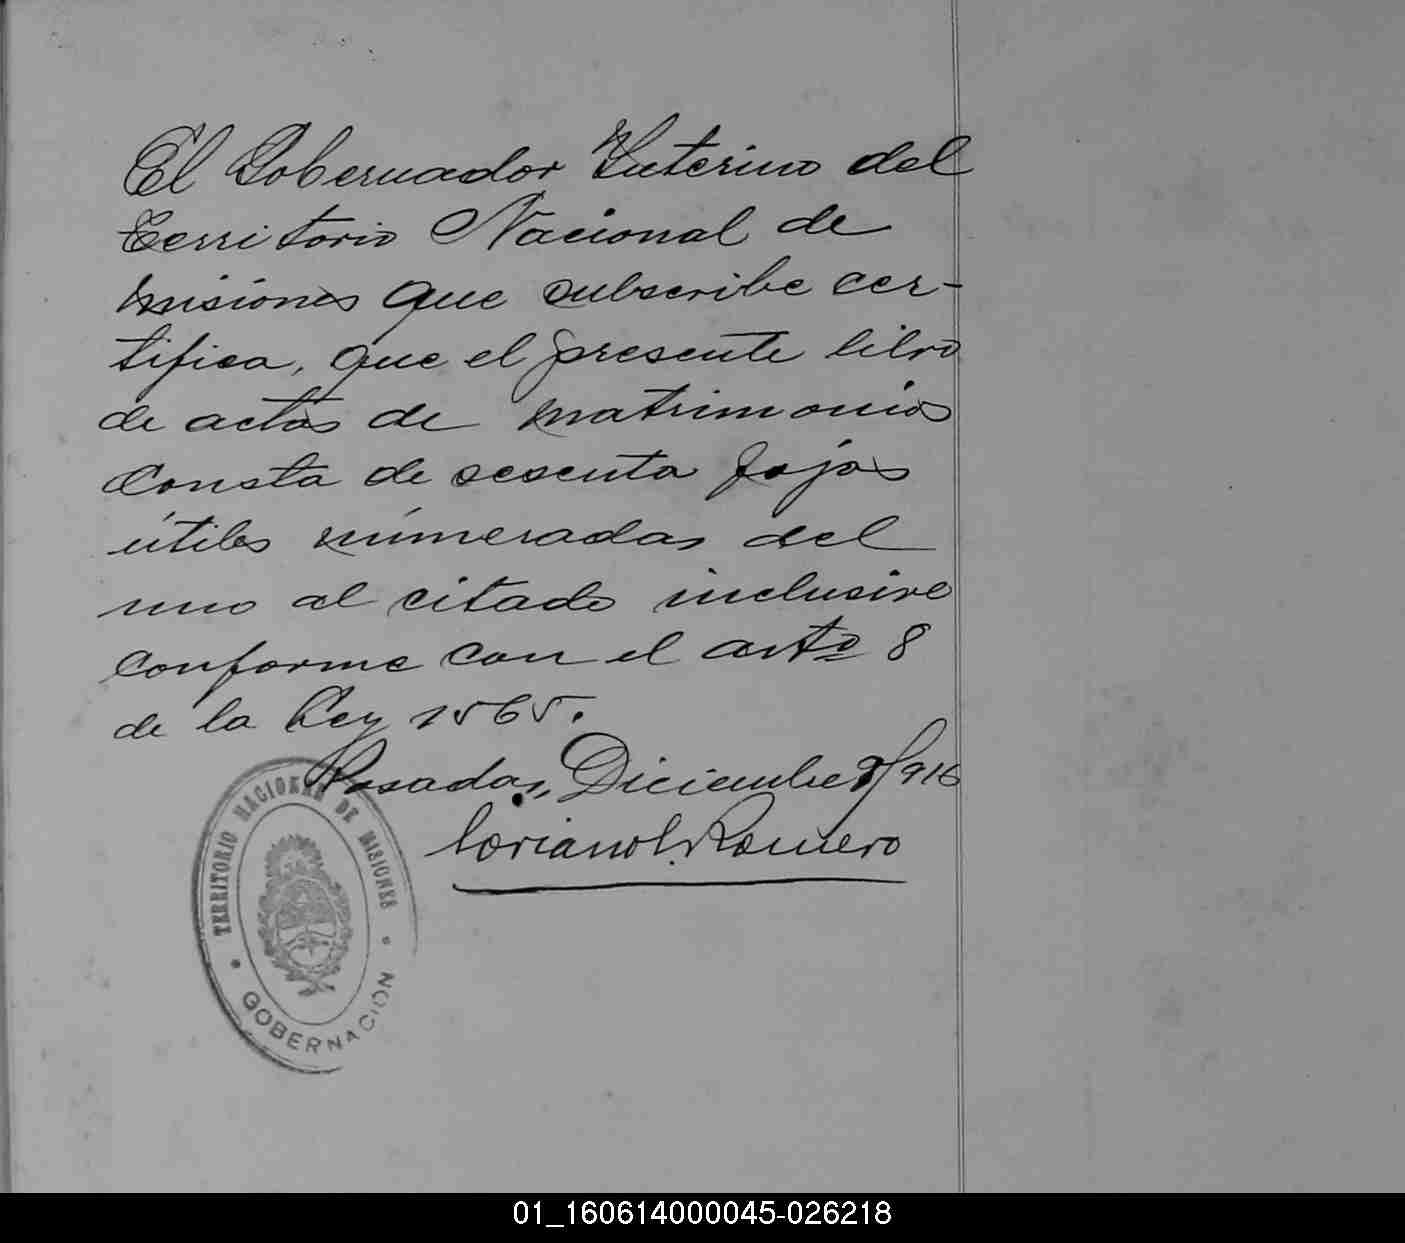 El Gobernador Interino del
Territorio Nacional de
misiones que subscribe cer-
tifica, que el presente libro
de actas de matrimonios
consta de sesenta fojas
útiles númeradas del
uno al citado inclusive
conforme con el artº 8
de la Ley 1565.
Posadas, Diciembre 9/916
Romero
TERRITORIO NACIONAL DE MISIONES
GOBERNACION
01_160614000045-026218